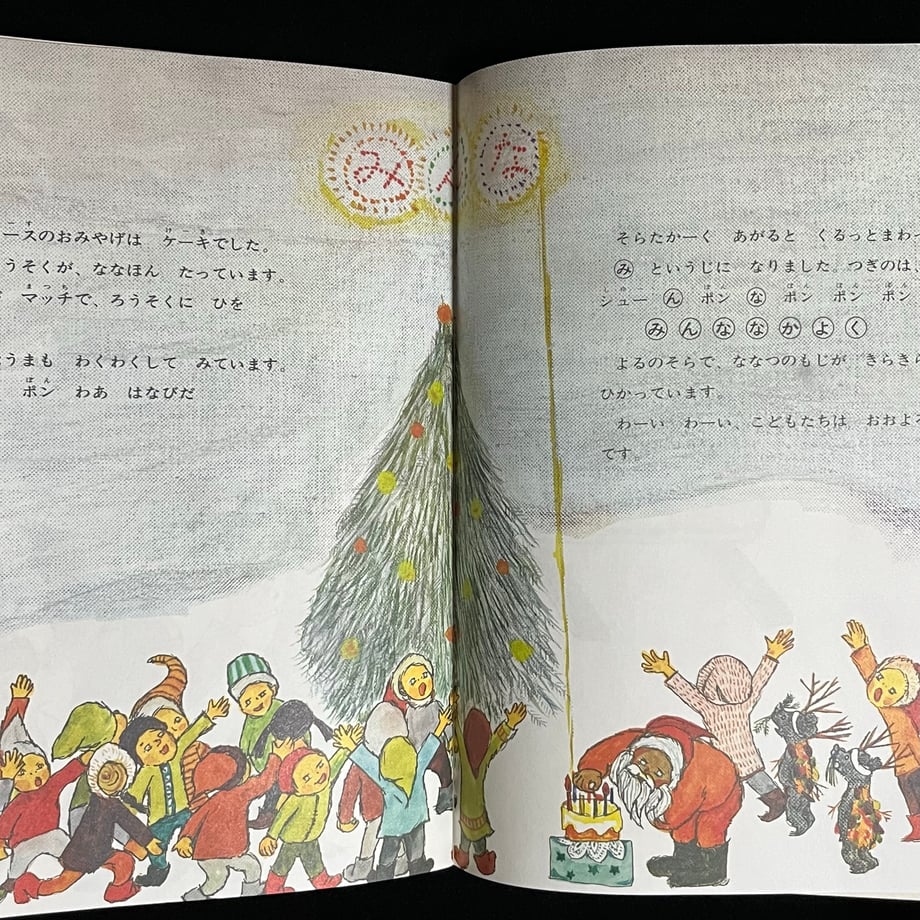 み
な
ースのおみやげは　ケーキでした。
うそくが、ななほん　たっています。
マッチで、ろうそくに　ひを
うまも　わくわくして　みています。
ポン　わあ　はなびだ
そらたかーく　あがると　くるっとまわっ
み　というじに　なりました。つぎのは、
シュー　ん　ポン　な　ポン　ポン　ポン
みんななかよく
よるのそらで、ななつのもじが　きらき
ひかっています。
わーい　わーい、こどもたちは　おおよ
です。